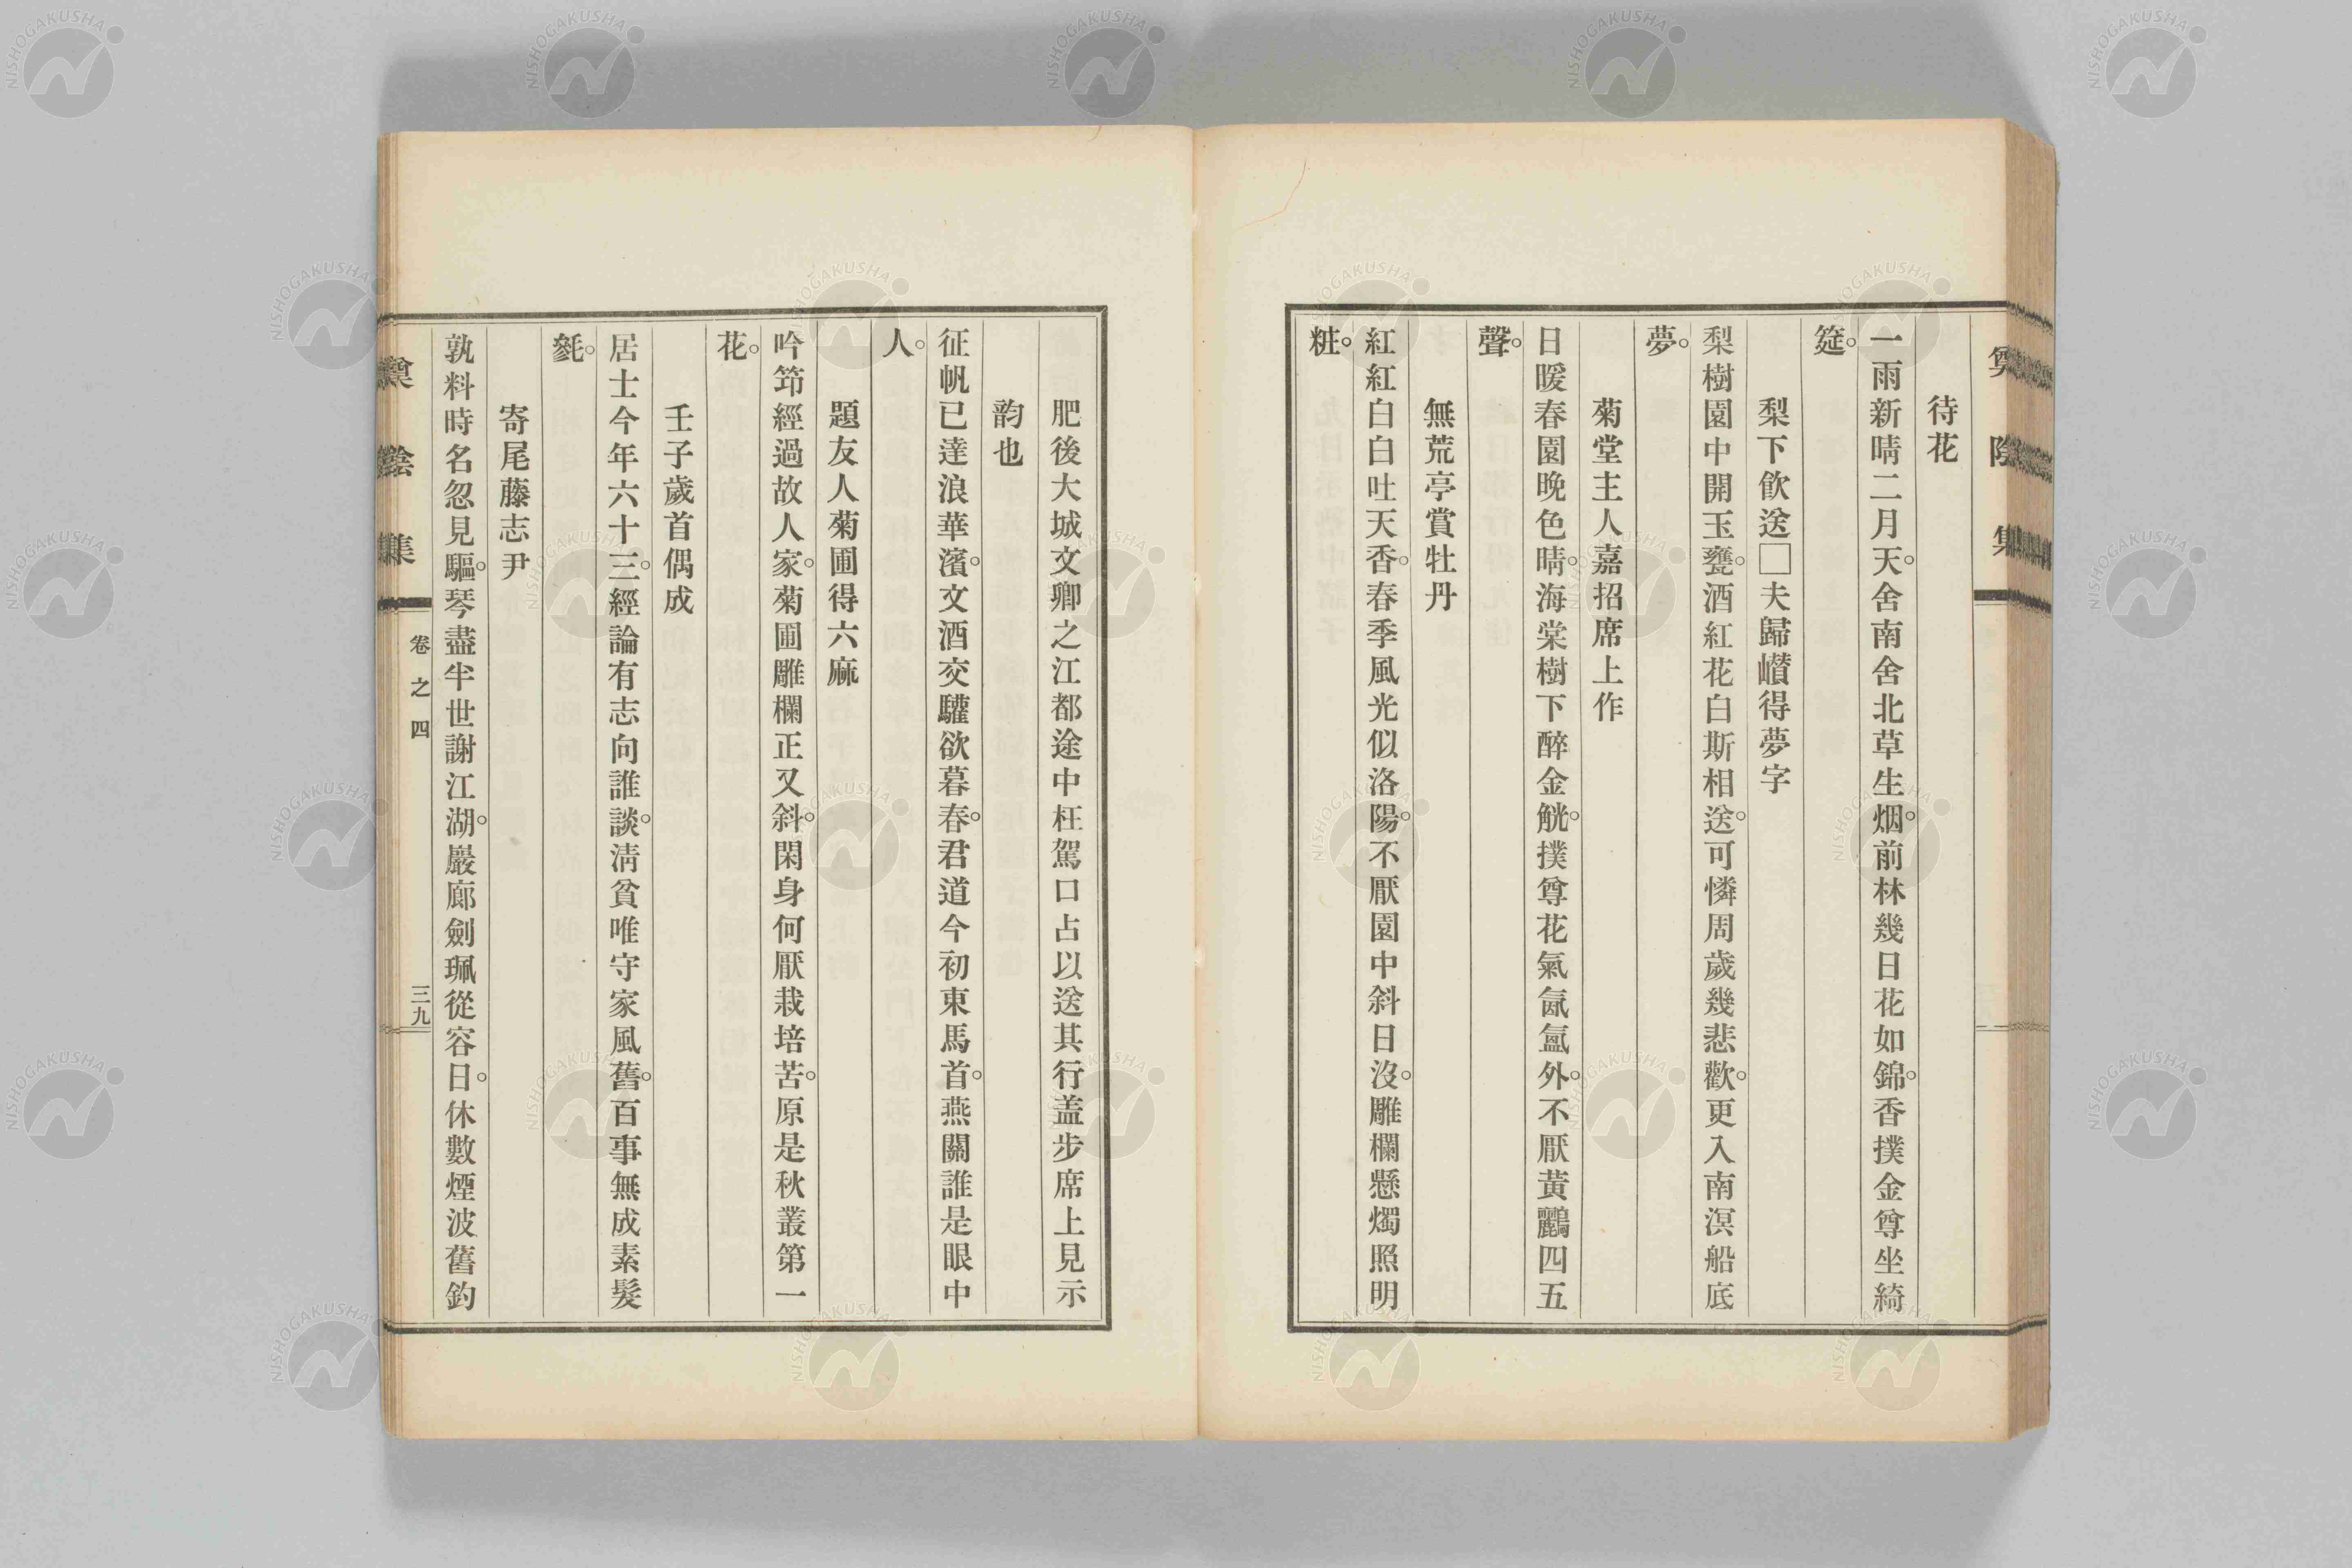 待花
一雨新晴二月天。舍南舍北草生烟。前林幾日花如錦。香撲金尊坐綺
筵。
梨下飲送□夫歸巑得夢字
梨樹園中開玉甕。酒紅花白斯相送。可憐周歲幾悲歡。更入南溟船底
夢。
菊堂主人嘉招席上作
日暖春園晚色晴。海棠樹下醉金觥。撲尊花氣氤氳外。不厭黃鸝四五
聲。
無荒亭賞牡丹
紅紅白白吐天香。春季風光似洛陽。不厭園中斜日沒。雕欄懸燭照明
粧。
肥後大城文卿之江都途中枉駕口占以送其行盖步席上見示
韵也
征帆已達浪華濱。文酒交驩欲暮春。君道今初東馬首。燕關誰是眼中
人。
題友人菊圃得六麻
吟筇經過故人家。菊圃雕欄正又斜。閑身何厭栽培苦。原是秋叢第一
花。
壬子歲首偶成
居士今年六十三。經論有志向誰談。清貧唯守家風舊。百事無成素髮
毿。
寄尾藤志尹
孰料時名忽見驅。琴盡半世謝江湖。巖廊劍珮從容日。休數煙波舊釣
集
卷之四
三九